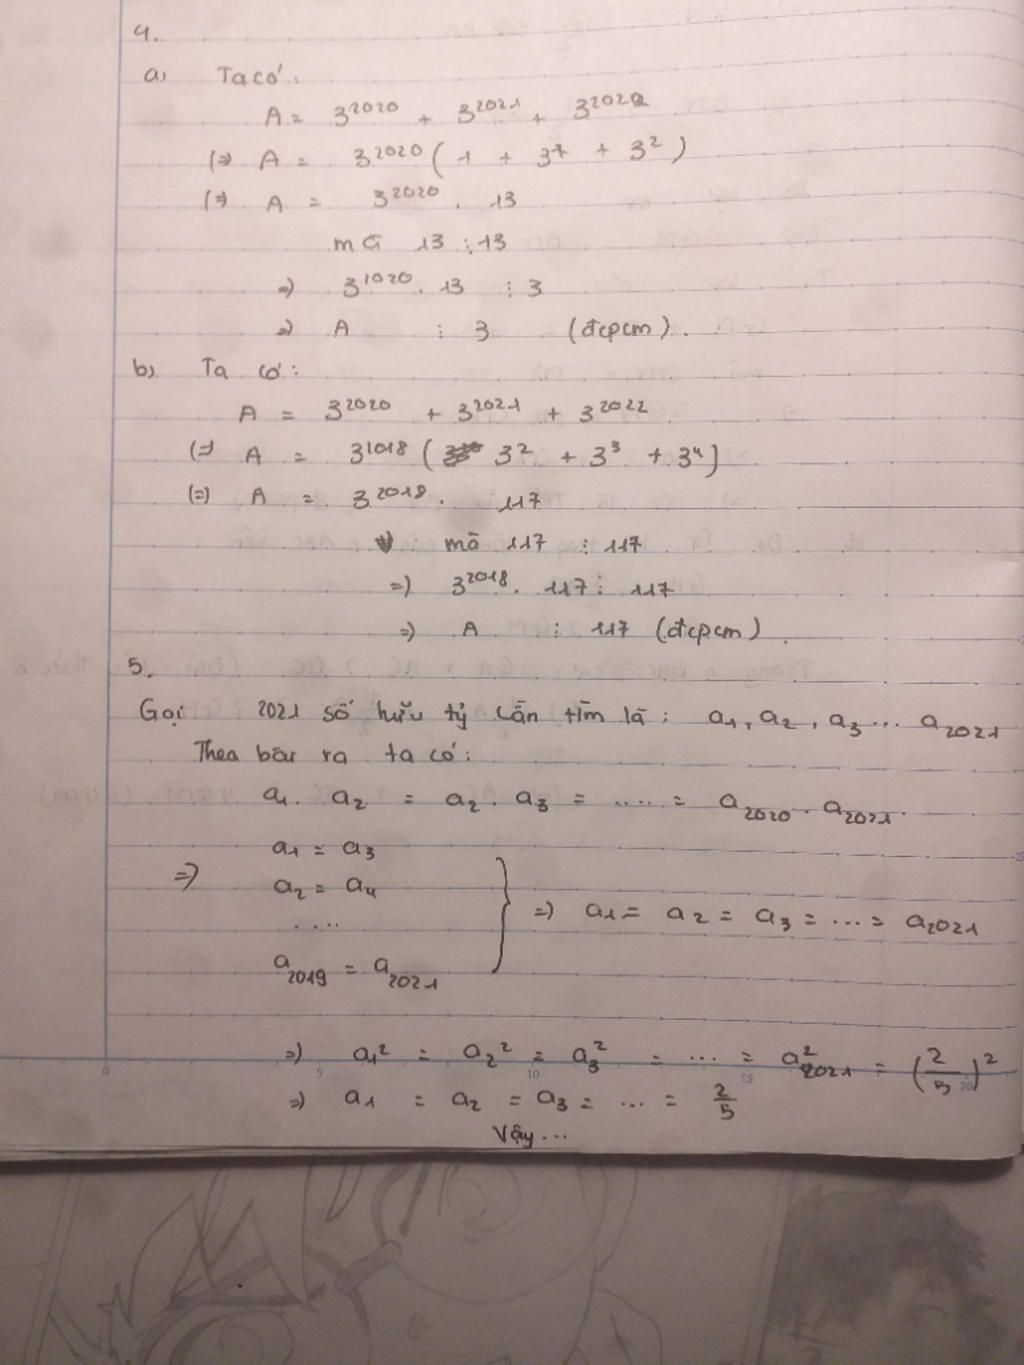 4.
a) Ta có:
A = 3^2020 + 3^2021 + 3^2022
(=) A = 3^2020 ( 1 + 3^1 + 3^2 )
(=) A = 3^2020 . 13
mà 13 ⋮ 13
=) 3^1020 . 13 ⋮ 3
=) A ⋮ 3 (đcpcm).
b) Ta có:
A = 3^2020 + 3^2021 + 3^2022
(=) A = 3^1018 ( 3^2 + 3^3 + 3^4 )
(=) A = 3^2018 . 117
mà 117 ⋮ 117
=) 3^2018 . 117 ⋮ 117
=) A ⋮ 117 (đcpcm).
5.
Gọi 2021 số hữu tỷ cần tìm là : a1, a2, a3 ... a2021
Theo bài ra ta có:
a1 . a2 = a2 . a3 = .... = a2020 . a2021.
a1 = a3
=) a2 = a4
....
=) a1 = a2 = a3 = ... = a2021
a2019 = a2021
=) a1^2 = a2^2 = a3^2 = ... = a2021^2 = (2/5)^2
=) a1 = a2 = a3 = ... = 2/5
Vậy ...